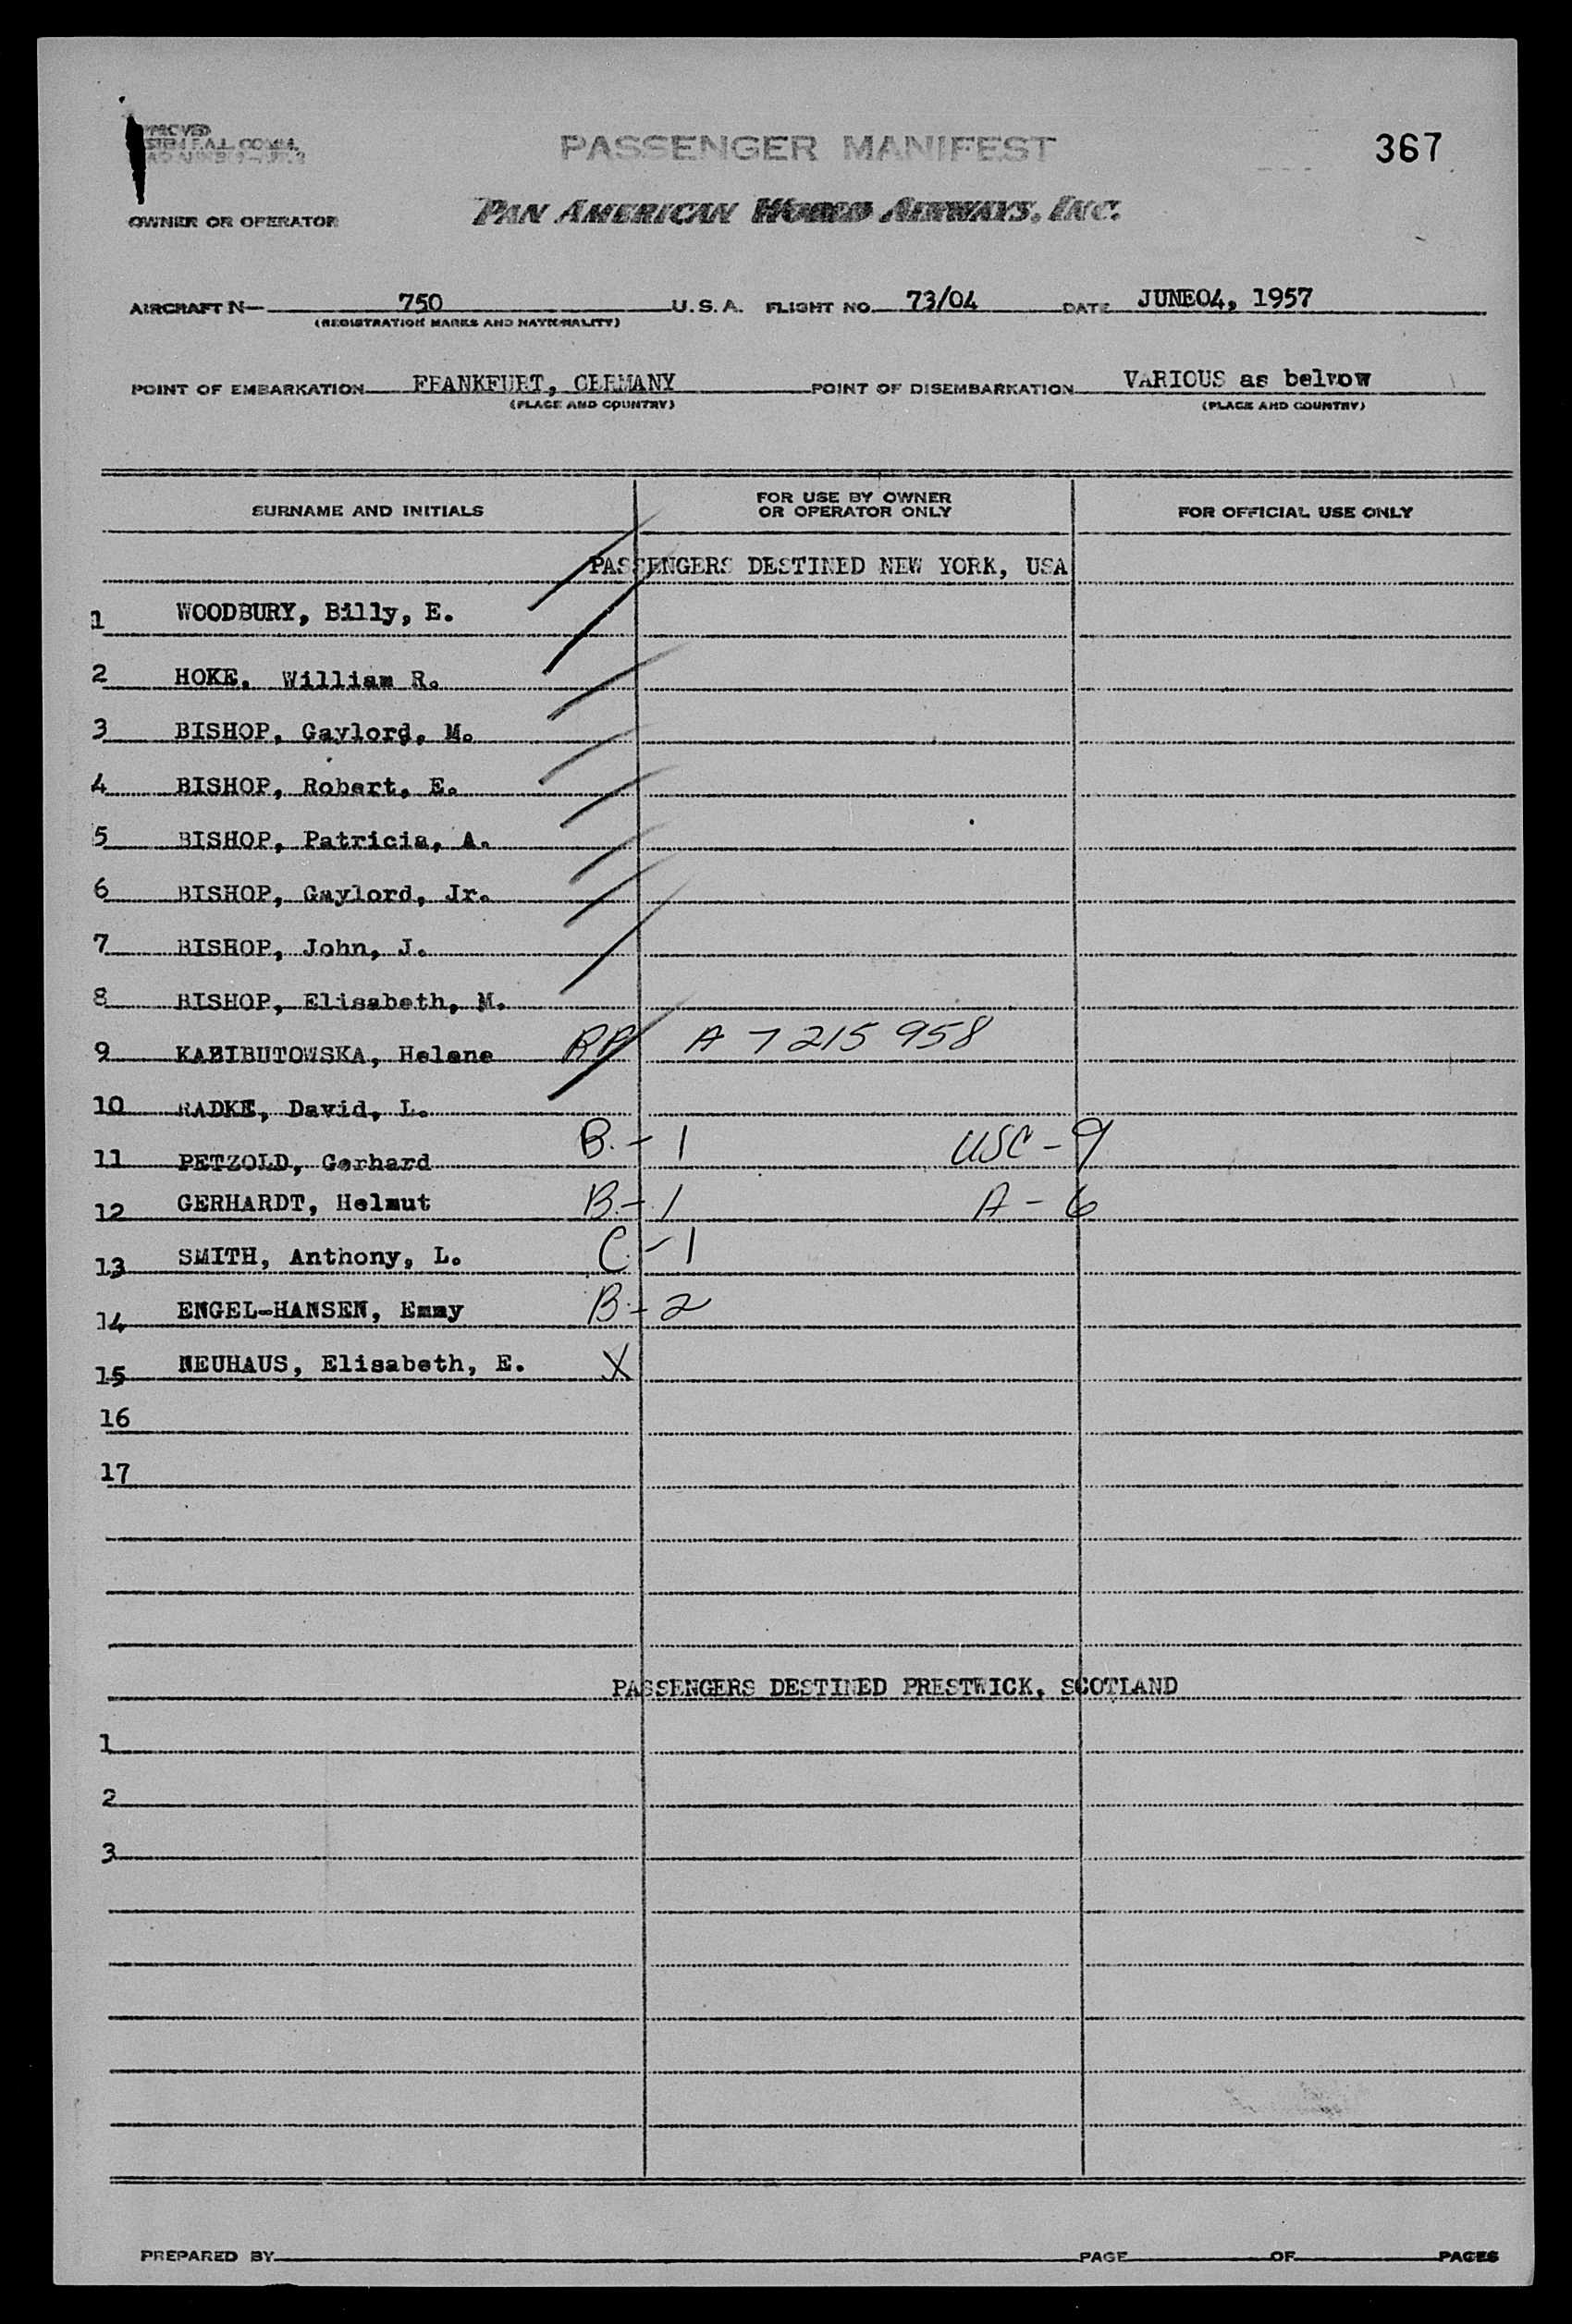 PASSENGER MANIFEST
367
OWNER OR OPERATOR PAN AMERICAN WORLD AIRWAYS, INC.
AIRCRAFT N— 750 U.S.A. FLIGHT NO. 73/04 DATE JUNE04, 1957
(REGISTRATION MARKS AND NATIONALITY)
POINT OF EMBARKATION FRANKFURT, GERMANY POINT OF DISEMBARKATION VARIOUS as belvow
(PLACE AND COUNTRY) (PLACE AND COUNTRY)
SURNAME AND INITIALS FOR USE BY OWNER
OR OPERATOR ONLY FOR OFFICIAL USE ONLY
PASSENGERS DESTINED NEW YORK, USA
1 WOODBURY, Billy, E.
2 HOKE, William R.
3 BISHOP, Gaylord, M.
4 BISHOP, Robert, E.
5 BISHOP, Patricia, A.
6 BISHOP, Gaylord, Jr.
7 BISHOP, John, J.
8 BISHOP, Elisabeth, M.
9 KABIBUTOWSKA, Helene RP A 7 215 958
10 RADKE, David, L.
11 PETZOLD, Gerhard B-1 USC-9
12 GERHARDT, Helmut B-1 A-6
13 SMITH, Anthony, L. C-1
14 ENGEL-HANSEN, Emmy B-2
15 NEUHAUS, Elisabeth, E. X
16
17
PASSENGERS DESTINED PRESTWICK, SCOTLAND
1
2
3
PREPARED BY PAGE OF PAGES